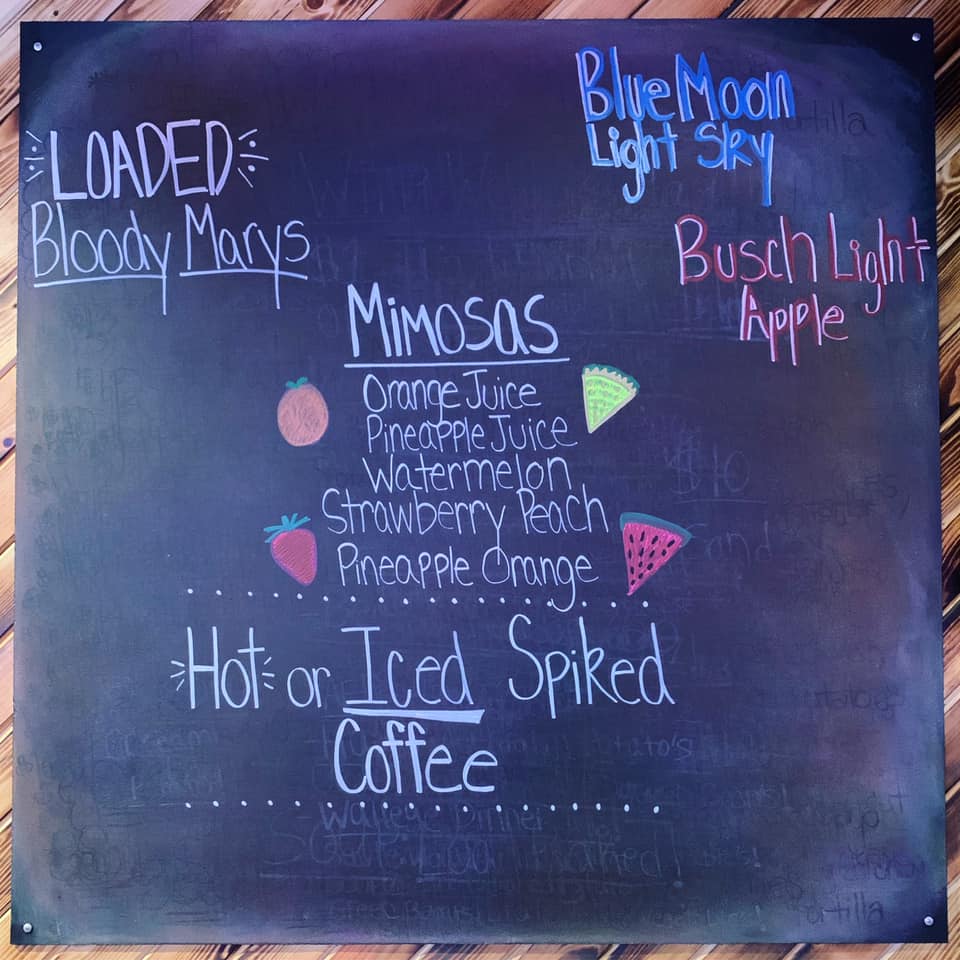 LOADED
Bloody Marys
Blue Moon
Light Sky
Busch Light
Apple
Mimosas
Orange Juice
Pineapple Juice
Watermelon
Strawberry Peach
Pineapple Orange
Hot or Iced Spiked
Coffee
$10
Walleye Dinner
tortilla